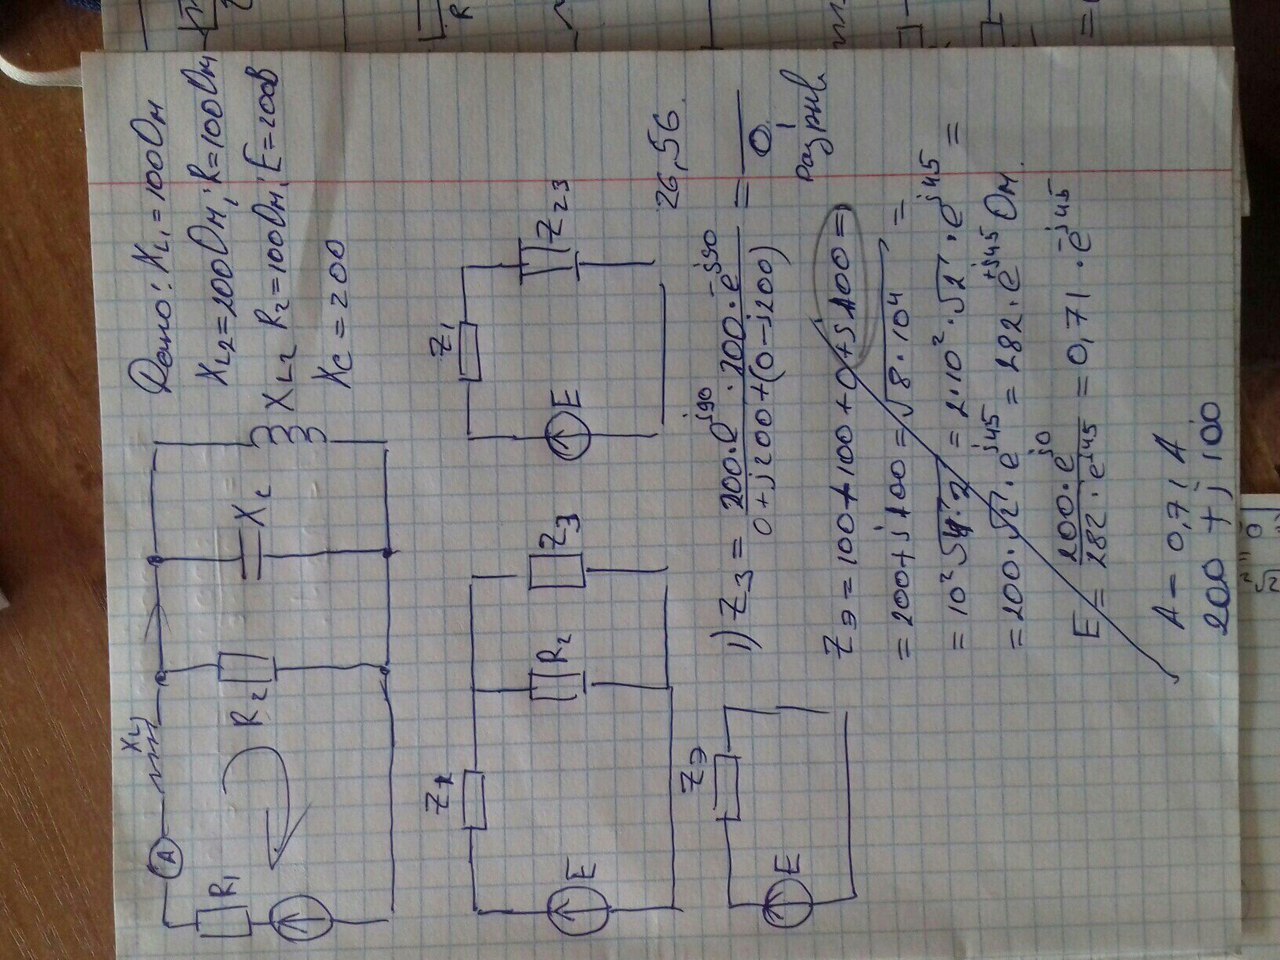 Дано: XL₁=100Ом
XL2=200Ом; R=100Ом
R₂=100Ом; E=200В
Xc=200
A
XL1
R1
R2
Xc
XL2
Z1
R2
Z3
E
Z1
Z23
E
26,56.
Zэ
E
1) Z3 = 200·e^j90 · 200·e^-j90 / 0+j200+(0-j200) = — / 0
разрыв
Zэ = 100+100+0+j100 =
= 200+j100 = √8·10⁴ =
= 10²√4·2 = 2·10²·√2·e^j45 =
= 200·√2·e^j45 = 282·e^+j45 Ом.
E = 200·e^j0 / 282·e^j45 = 0,71·e^-j45
A – 0,71 А
200 + j 100